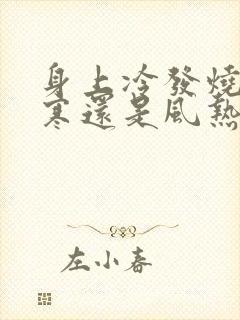 身上冷發燒
寒還是風熱
左小春